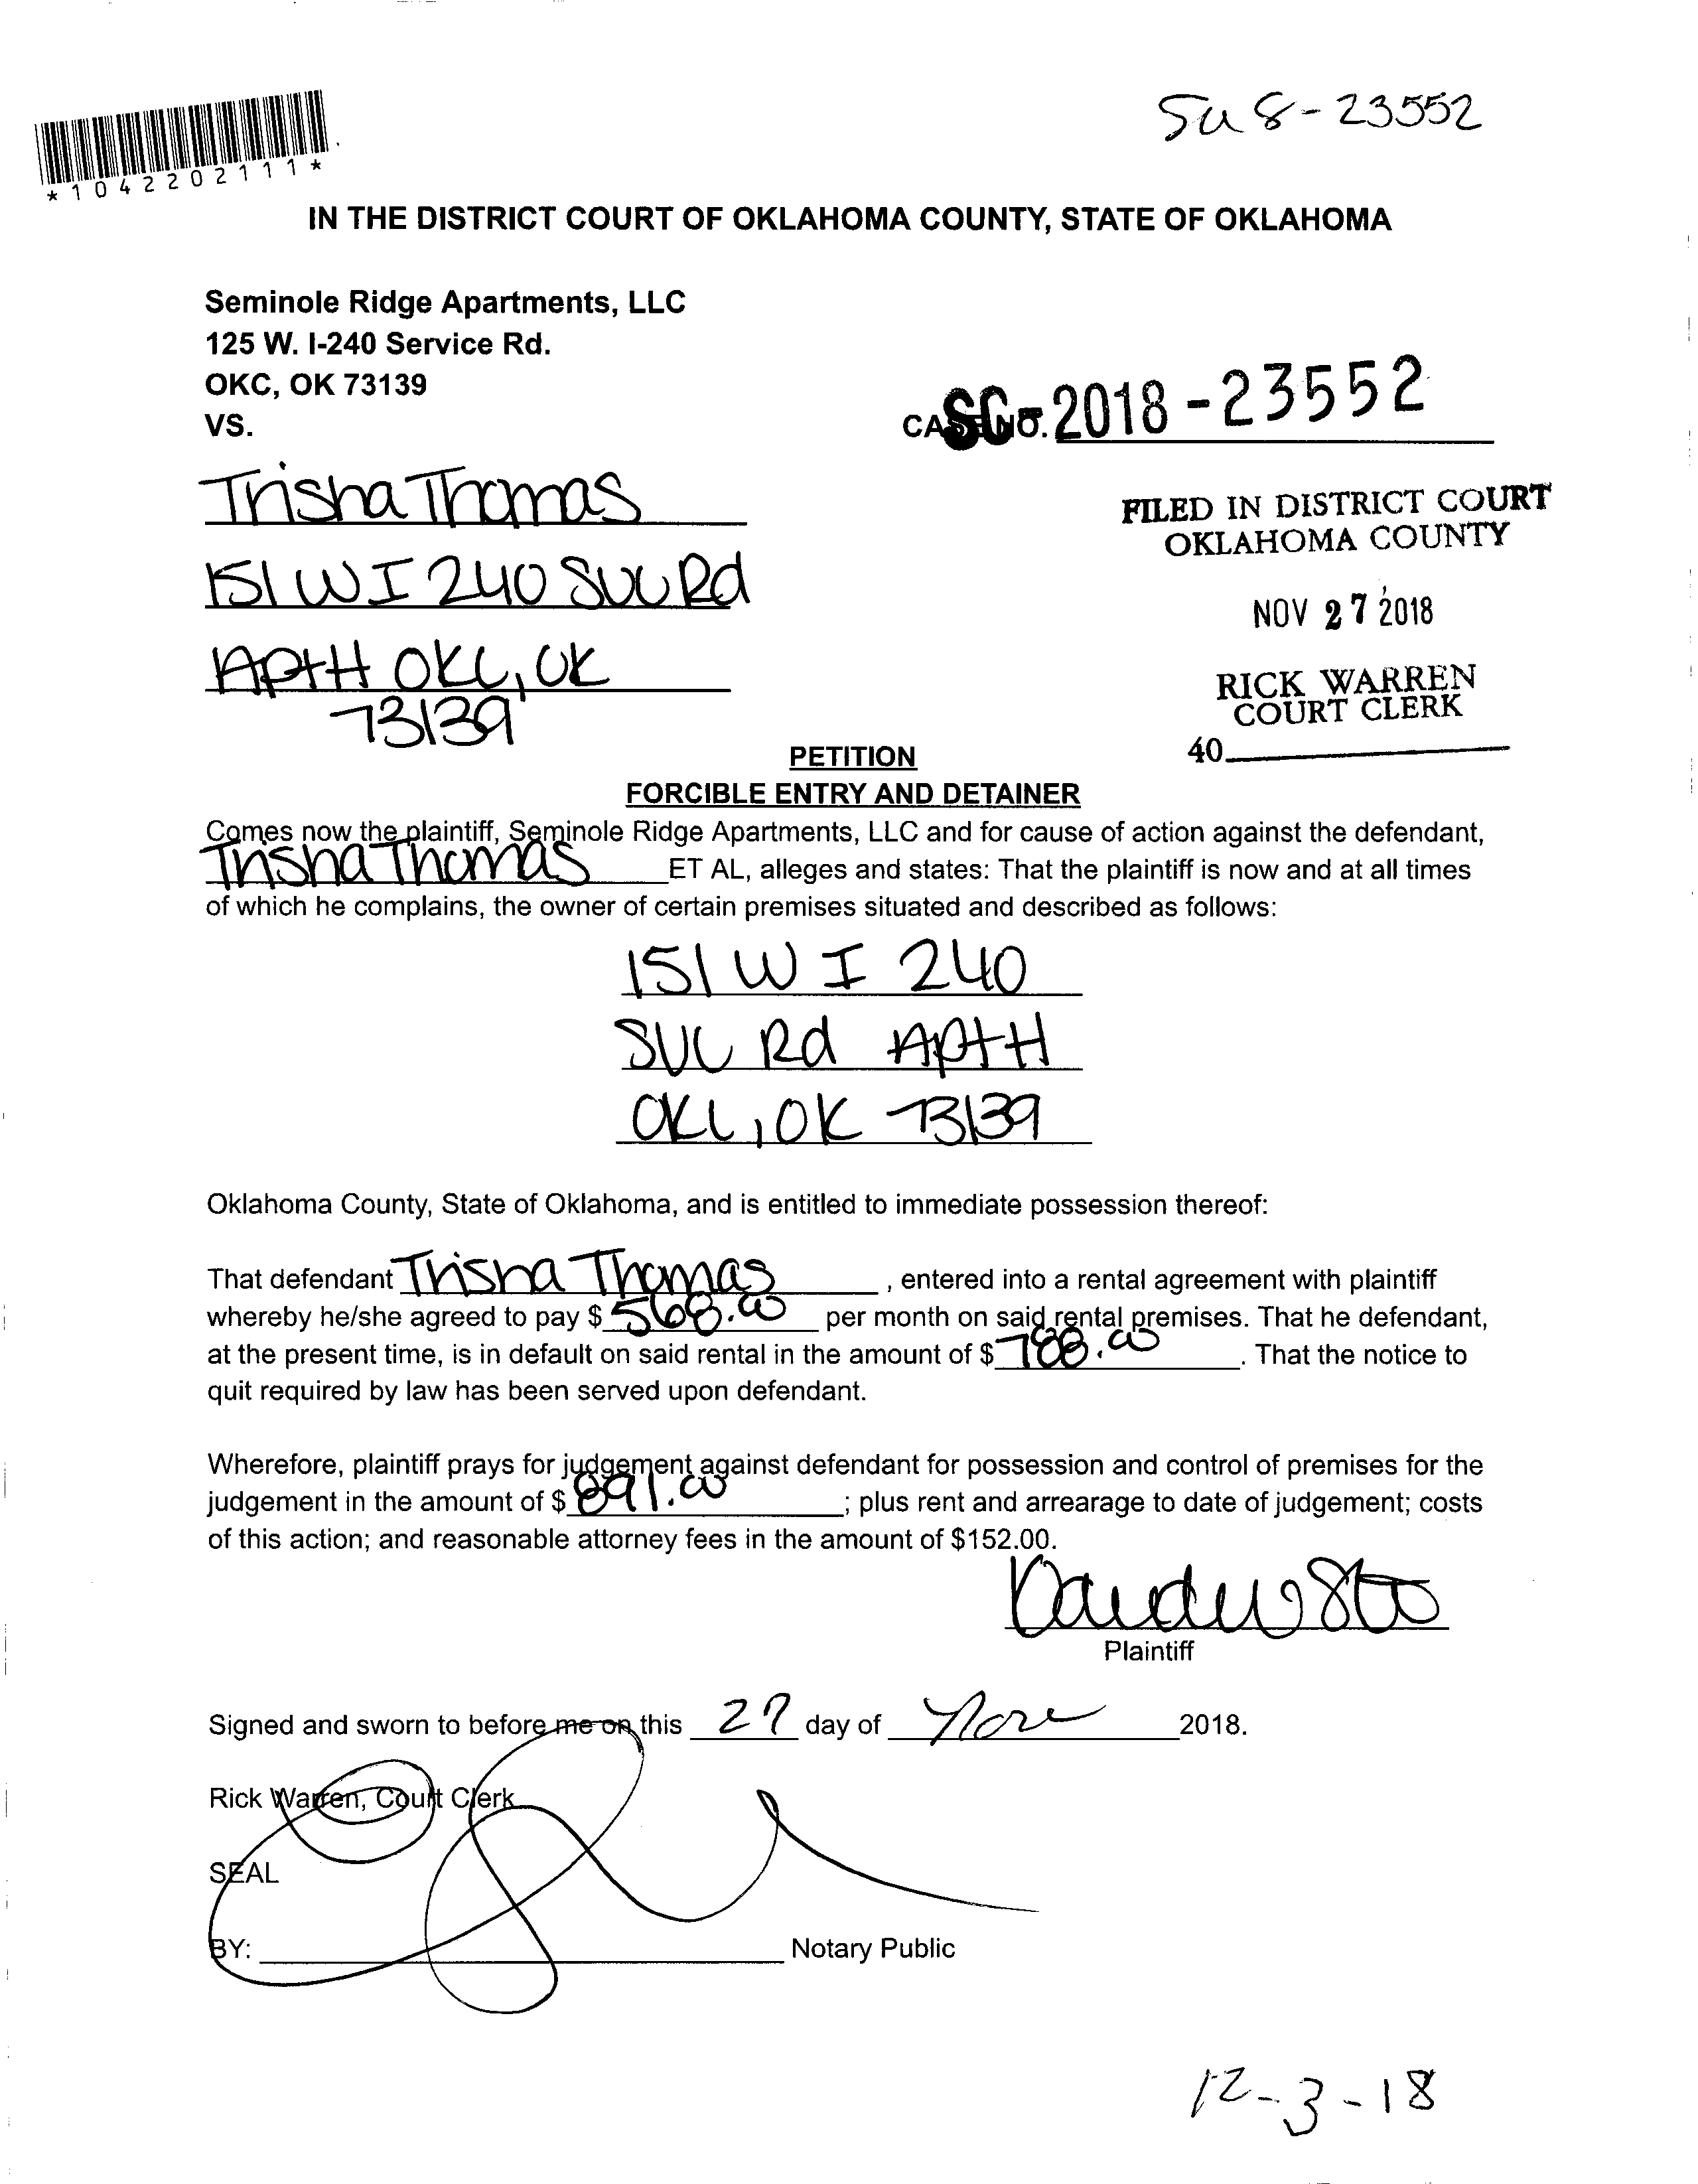 SC18-23552
*1042202111*
IN THE DISTRICT COURT OF OKLAHOMA COUNTY, STATE OF OKLAHOMA
Seminole Ridge Apartments, LLC
125 W. I-240 Service Rd.
OKC, OK 73139
VS.
CASE NO. SC-2018-23552
Trisha Thomas
151 W I 240 SVC Rd
APt H OKC, OK
73139
FILED IN DISTRICT COURT
OKLAHOMA COUNTY
NOV 27 2018
RICK WARREN
COURT CLERK
40
PETITION
FORCIBLE ENTRY AND DETAINER
Comes now the plaintiff, Seminole Ridge Apartments, LLC and for cause of action against the defendant,
Trisha Thomas ET AL, alleges and states: That the plaintiff is now and at all times
of which he complains, the owner of certain premises situated and described as follows:
151 W I 240
SVC Rd APt H
OKC, OK 73139
Oklahoma County, State of Oklahoma, and is entitled to immediate possession thereof:
That defendant Trisha Thomas, entered into a rental agreement with plaintiff
whereby he/she agreed to pay $ 568.00 per month on said rental premises. That he defendant,
at the present time, is in default on said rental in the amount of $ 788.00. That the notice to
quit required by law has been served upon defendant.
Wherefore, plaintiff prays for judgement against defendant for possession and control of premises for the
judgement in the amount of $ 891.00; plus rent and arrearage to date of judgement; costs
of this action; and reasonable attorney fees in the amount of $152.00.
Plaintiff
Signed and sworn to before me on this 27 day of Nov 2018.
Rick Warren, Court Clerk
SEAL
BY: Notary Public
12-3-18